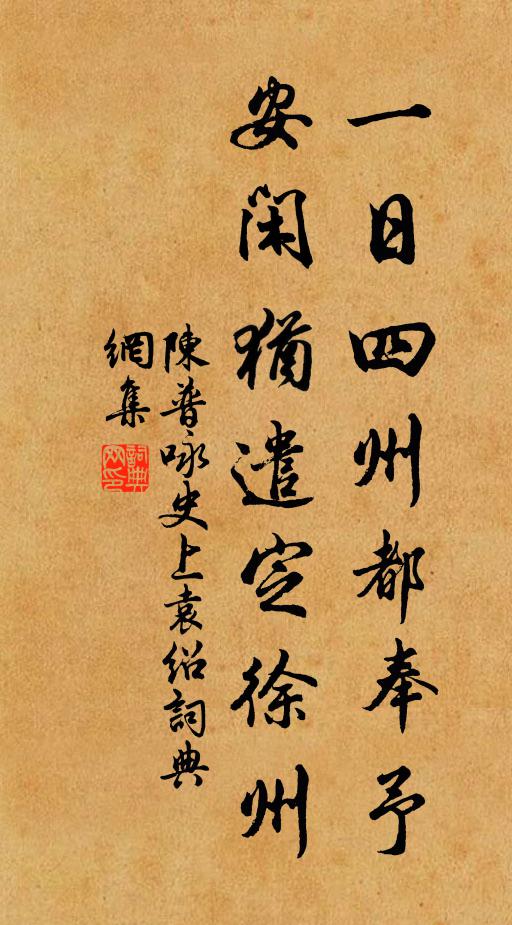 一日四州都奉予
安閑猶遣定徐州
陳普咏史上袁紹詞典
網集
詞典
網印